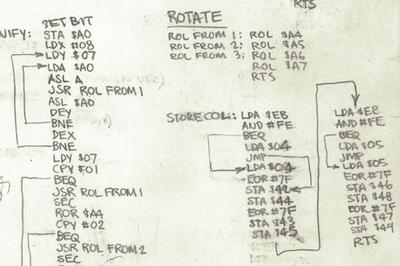 RTS
GET BYT
NIFY: STA $A0
LDX #08
LDY $07
LDA $A0
ASL A
JSR ROL FROM 1
ASL $A0
DEY
BNE
DEX
BNE
LDY $07
CPY #01
BEQ
JSR ROL FROM 1
SEC
ROR $A4
CPY #02
BEQ
JSR ROL FROM 2
SEC
ROTATE
ROL FROM 1: ROL $A4
ROL FROM 2: ROL $A5
ROL FROM 3: ROL $A6
ROL $A7
RTS
STORE COL: LDA $EB
AND #FE
BEQ
LDA $04
JMP
LDA $04
EOR #7F
STA $42
STA $44
EOR #7F
STA $43
STA $45
LDA $EB
AND #FE
BEQ
LDA $05
JMP
LDA $05
EOR #7F
STA $46
STA $48
EOR #7F
STA $47
STA $49
RTS